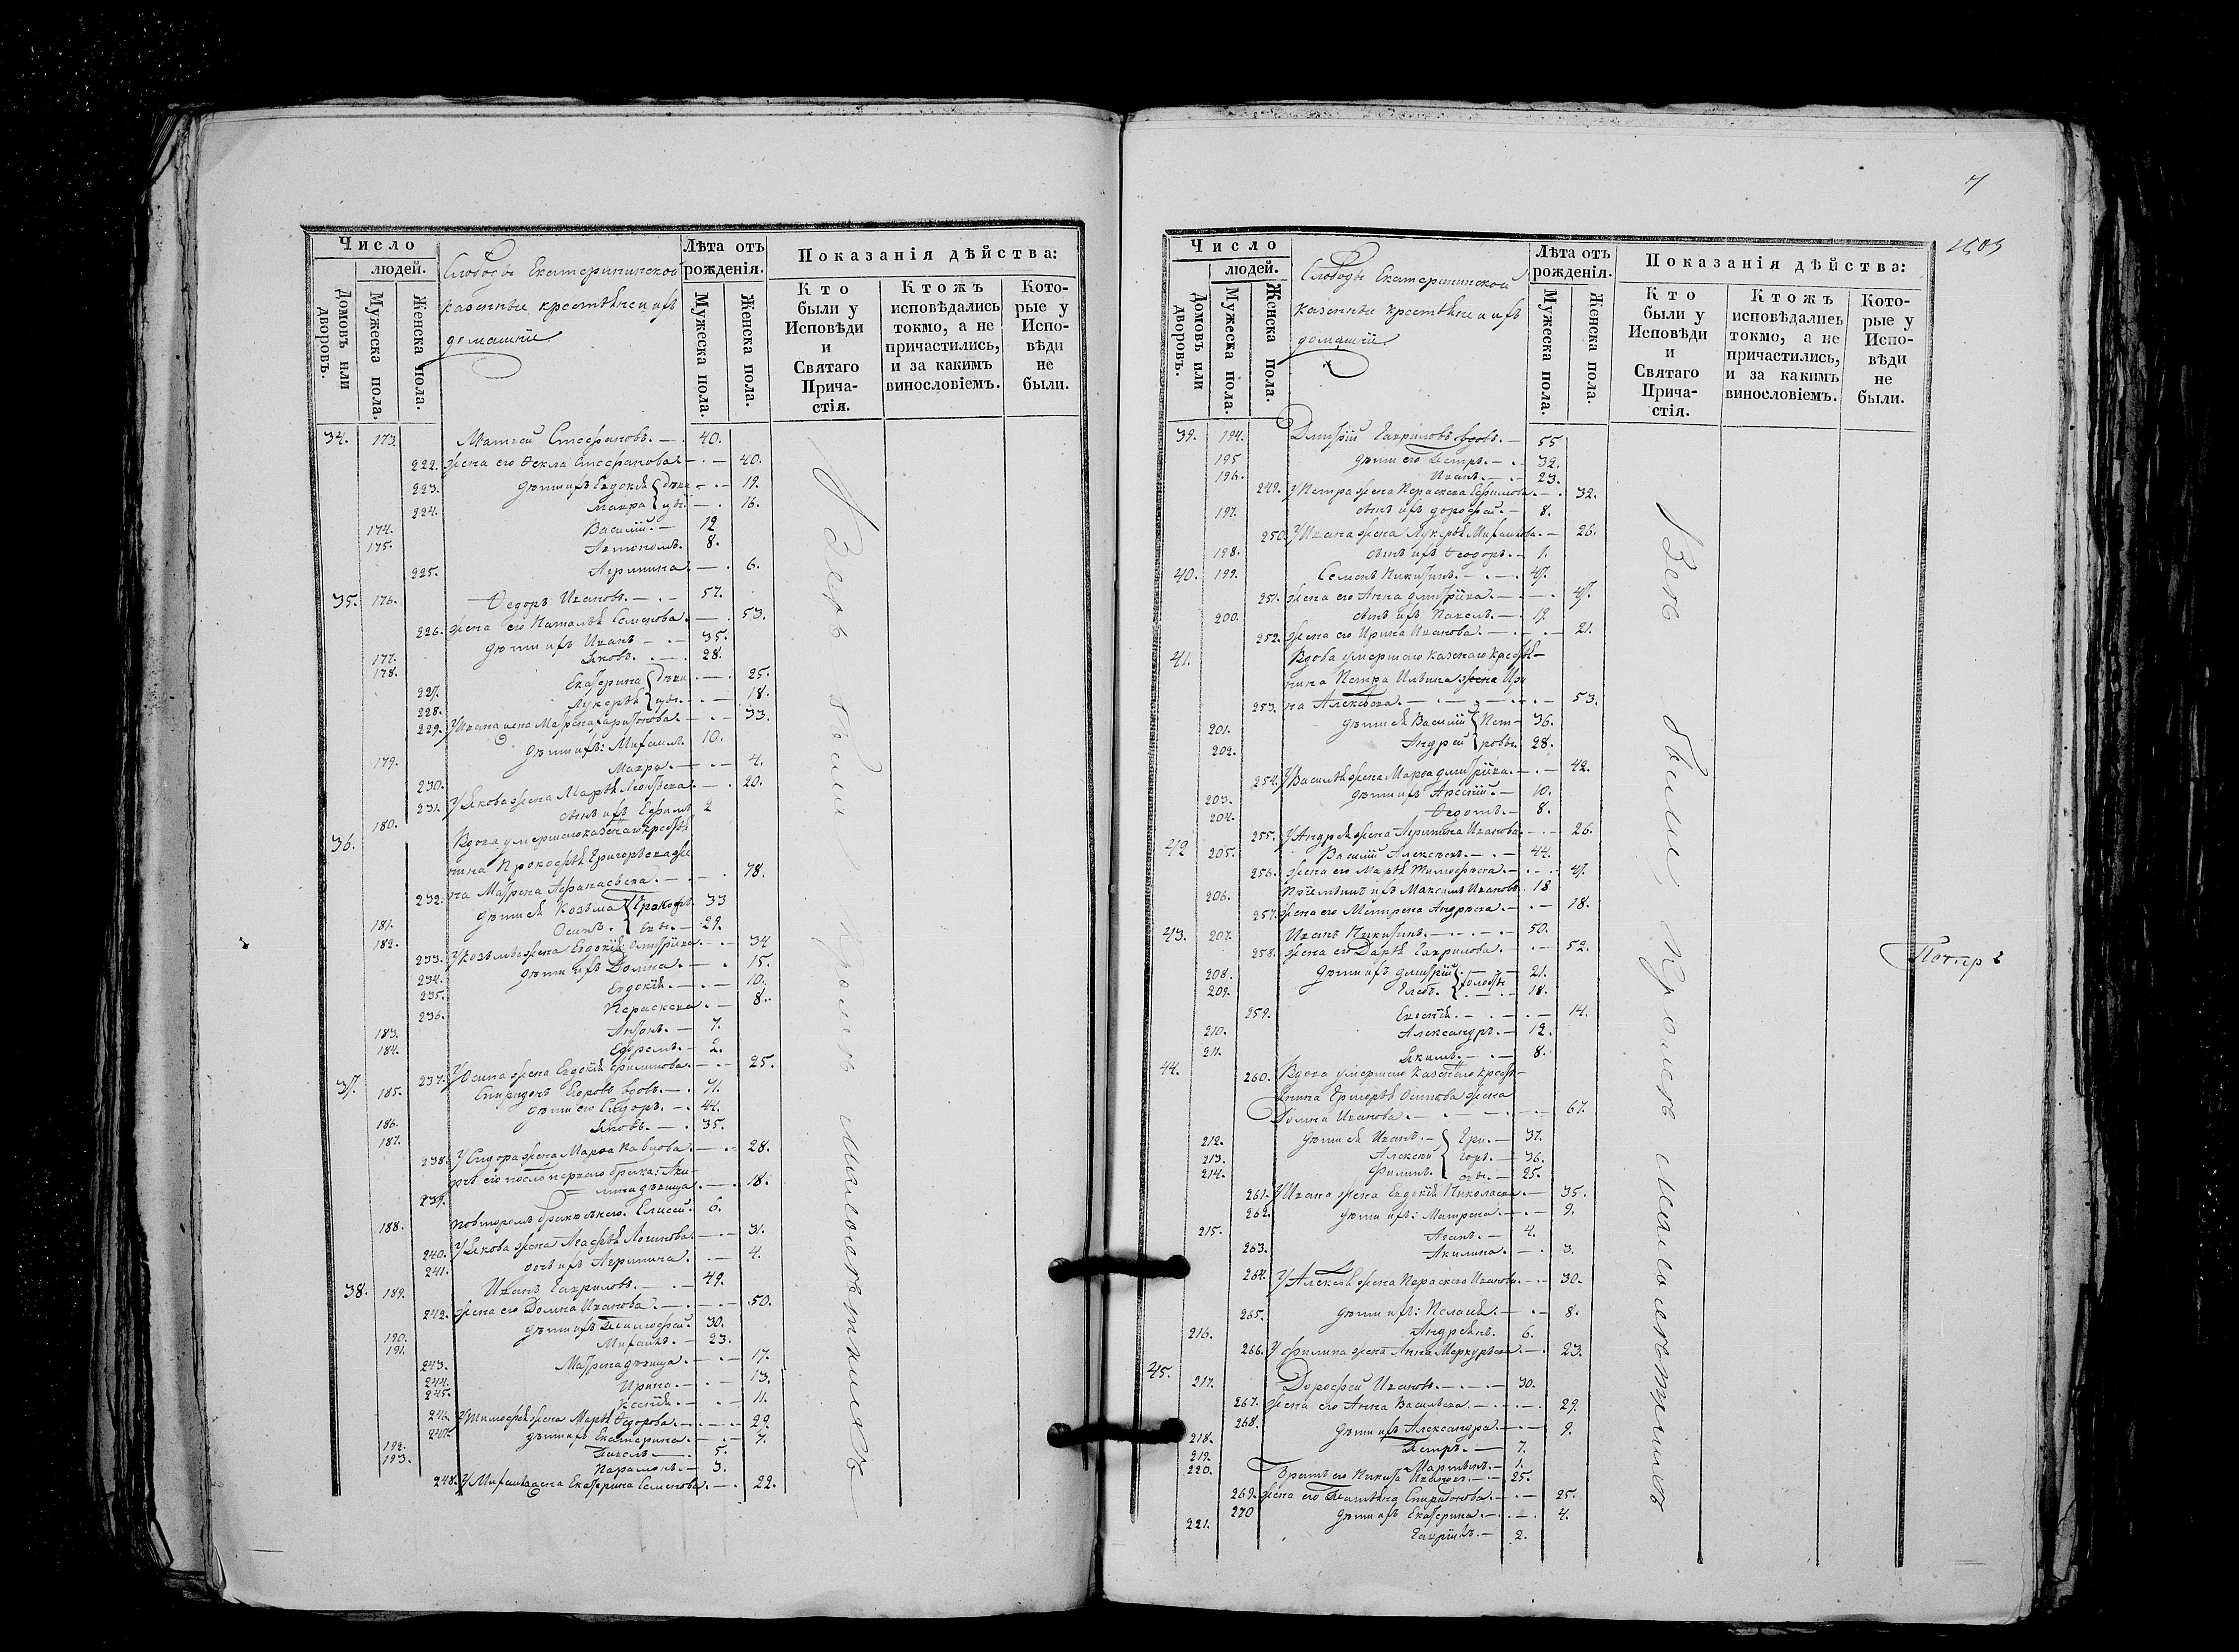 Число
людей.
Домовъ или дворовъ.
Мужеска пола.
Женска пола.
Слободы Екатерининской
казенные крестьяне и ихъ
домашніе
Лѣта отъ рожденія.
Мужеска пола.
Женска пола.
Показанія дѣйства:
Кто были у Исповѣди и Святаго Прича-стія.
Ктожъ исповѣдались токмо, а не причастились, и за какимъ винословіемъ.
Кото-рые у Испо-вѣди не были.
34. 173. Матвей Стефановъ. 40.
222. жена его Фекла Стефанова. 40.
223. дѣти ихъ Евдокія дѣви 19.
224. Мавра цы. 16.
174. Василій. 12
175. Автономъ. 8.
225. Агрипина. 6.
35. 176. Федоръ Ивановъ. 57.
226. жена его Наталья Семенова. 53.
177. дѣти ихъ Иванъ 35.
178. Яковъ. 28.
227. Екатерина дѣви 25.
228. Лукерья цы. 18.
229. У Ивана жена Матрена Харитонова. 33.
179. дѣти ихъ: Михаилъ. 10.
230. Мавра. 4.
231. У Якова жена Марья Леонтьева. 20.
180. сынъ ихъ Ефимъ 2
36. Вдова умершаго казенаго крестья
нина Прокофья Григорьева же
232. на Матрена Афанасьева. 78.
181. дѣти ея Козьма Прокофь 33
182. Осипъ. евы. 29.
233. У Козьмы жена Евдокія Дмитріева. 34
234. дѣти ихъ Домна. 15.
235. Евдокія. 10.
236. Пераскева 8.
183. Антонъ. 7.
184. Ефремъ. 2.
237. У Осипа жена Евдокія Филипова. 25.
37. 185. Спиридонъ Егоровъ вдовъ. 71.
186. дѣти его Сидоръ. 44.
187. Яковъ. 35.
238. У Сидора жена Марѳа Павлова. 28.
дочь его послѣ перваго брака: Аку-
239. лина дѣвица. 18.
188. Елисей. 6.
240. У Якова жена Агафья Логинова. 31.
241. дочь ихъ Агрипина. 4.
38. 189. Иванъ Гавриловъ. 49.
242. жена его Домна Иванова. 50.
190. дѣти ихъ Тимофей. 30.
191. Михаилъ. 23.
243. Матрена дѣвица. 17.
244. Ирина. 13.
245. Ксенія. 11.
246. У Тимофея жена Марья Федорова. 29.
247. дѣти ихъ Екатерина. 7.
192. Павелъ 5.
193. Парамонъ. 3.
248. У Михаила жена Екатерина Семенова. 22.
Всѣ были, кромѣ малолѣтнихъ
7
Число
людей.
Домовъ или дворовъ.
Мужеска пола.
Женска пола.
Слободы Екатерининской
казенные крестьяне и ихъ
домашніе
Лѣта отъ рожденія.
Мужеска пола.
Женска пола.
Показанія дѣйства:
Кто были у Исповѣди и Святаго Прича-стія.
Ктожъ исповѣдались токмо, а не причастились, и за какимъ винословіемъ.
Кото-рые у Испо-вѣди не были.
39. 194. Дмитрій Гавриловъ вдовъ. 55
195 дѣти его Петръ. 32.
196. Иванъ. 23.
249. У Петра жена Пераскева Ефимова. 32.
197. сынъ ихъ Дорофей. 8.
250. У Ивана жена Лукерья Михаилова. 26.
198. сынъ ихъ Феодоръ. 1.
40. 199. Семенъ Никитинъ. 47.
251. жена его Анна Дмитріева. 47.
200. сынъ ихъ Павелъ. 19.
252. жена его Ирина Иванова. 21.
41. Вдова умершаго казенаго крестья-
нина Петра Ильина жена Ири
253. на Алексѣева. 53.
201. дѣти ея Василій Пет- 36.
202. Андрей ровы. 28.
254. У Василья жена Марѳа Дмитріева. 42.
203. дѣти ихъ Арсеній. 10.
204. Федотъ. 8.
255. У Андрея жена Агрипина Иванова. 26.
42 205. Василій Алексѣевъ. 44.
256. жена его Марья Тимофѣева. 47.
206. пріемышъ ихъ Максимъ Ивановъ. 18
257. жена его Матрена Андреева. 18.
43. 207. Иванъ Никитинъ. 50.
258. жена его Дарья Гаврилова. 52.
208. дѣти ихъ Дмитрій холосты 21.
209. Глебъ. 18.
259. Евгенія. 14.
210. Александръ. 12.
211. Якимъ. 8.
44. 260. Вдова умершаго казенаго кресть-
янина Григорья Осипова жена
Домна Иванова. 67.
212. дѣти ея Иванъ. Гри- 37.
213. Алексей горь- 36.
214. Филипъ. евы. 25.
261. У Ивана жена Евдокія Николаева. 35.
262. дѣти ихъ: Матрена. 9.
215. Иванъ. 4.
263. Акилина. 3.
264. У Алексѣя жена Пераскева Иванова. 30.
265. дѣти ихъ: Пелагія. 8.
216. Андреянъ. 6.
266. У Филипа жена Анна Меркурьева. 23.
45. 217. Дорофей Ивановъ. 30.
267. жена его Анна Васильева. 29.
268. дѣти ихъ Александра. 9.
218. Петръ. 7.
219. Мартынъ. 1.
220. братъ его Никита Ивановъ. 25.
269. жена его Татьяна Спиридонова. 25.
270 дѣти ихъ Екатерина. 4.
221. Гавріилъ. 2.
Всѣ были, кромѣ малолѣтнихъ